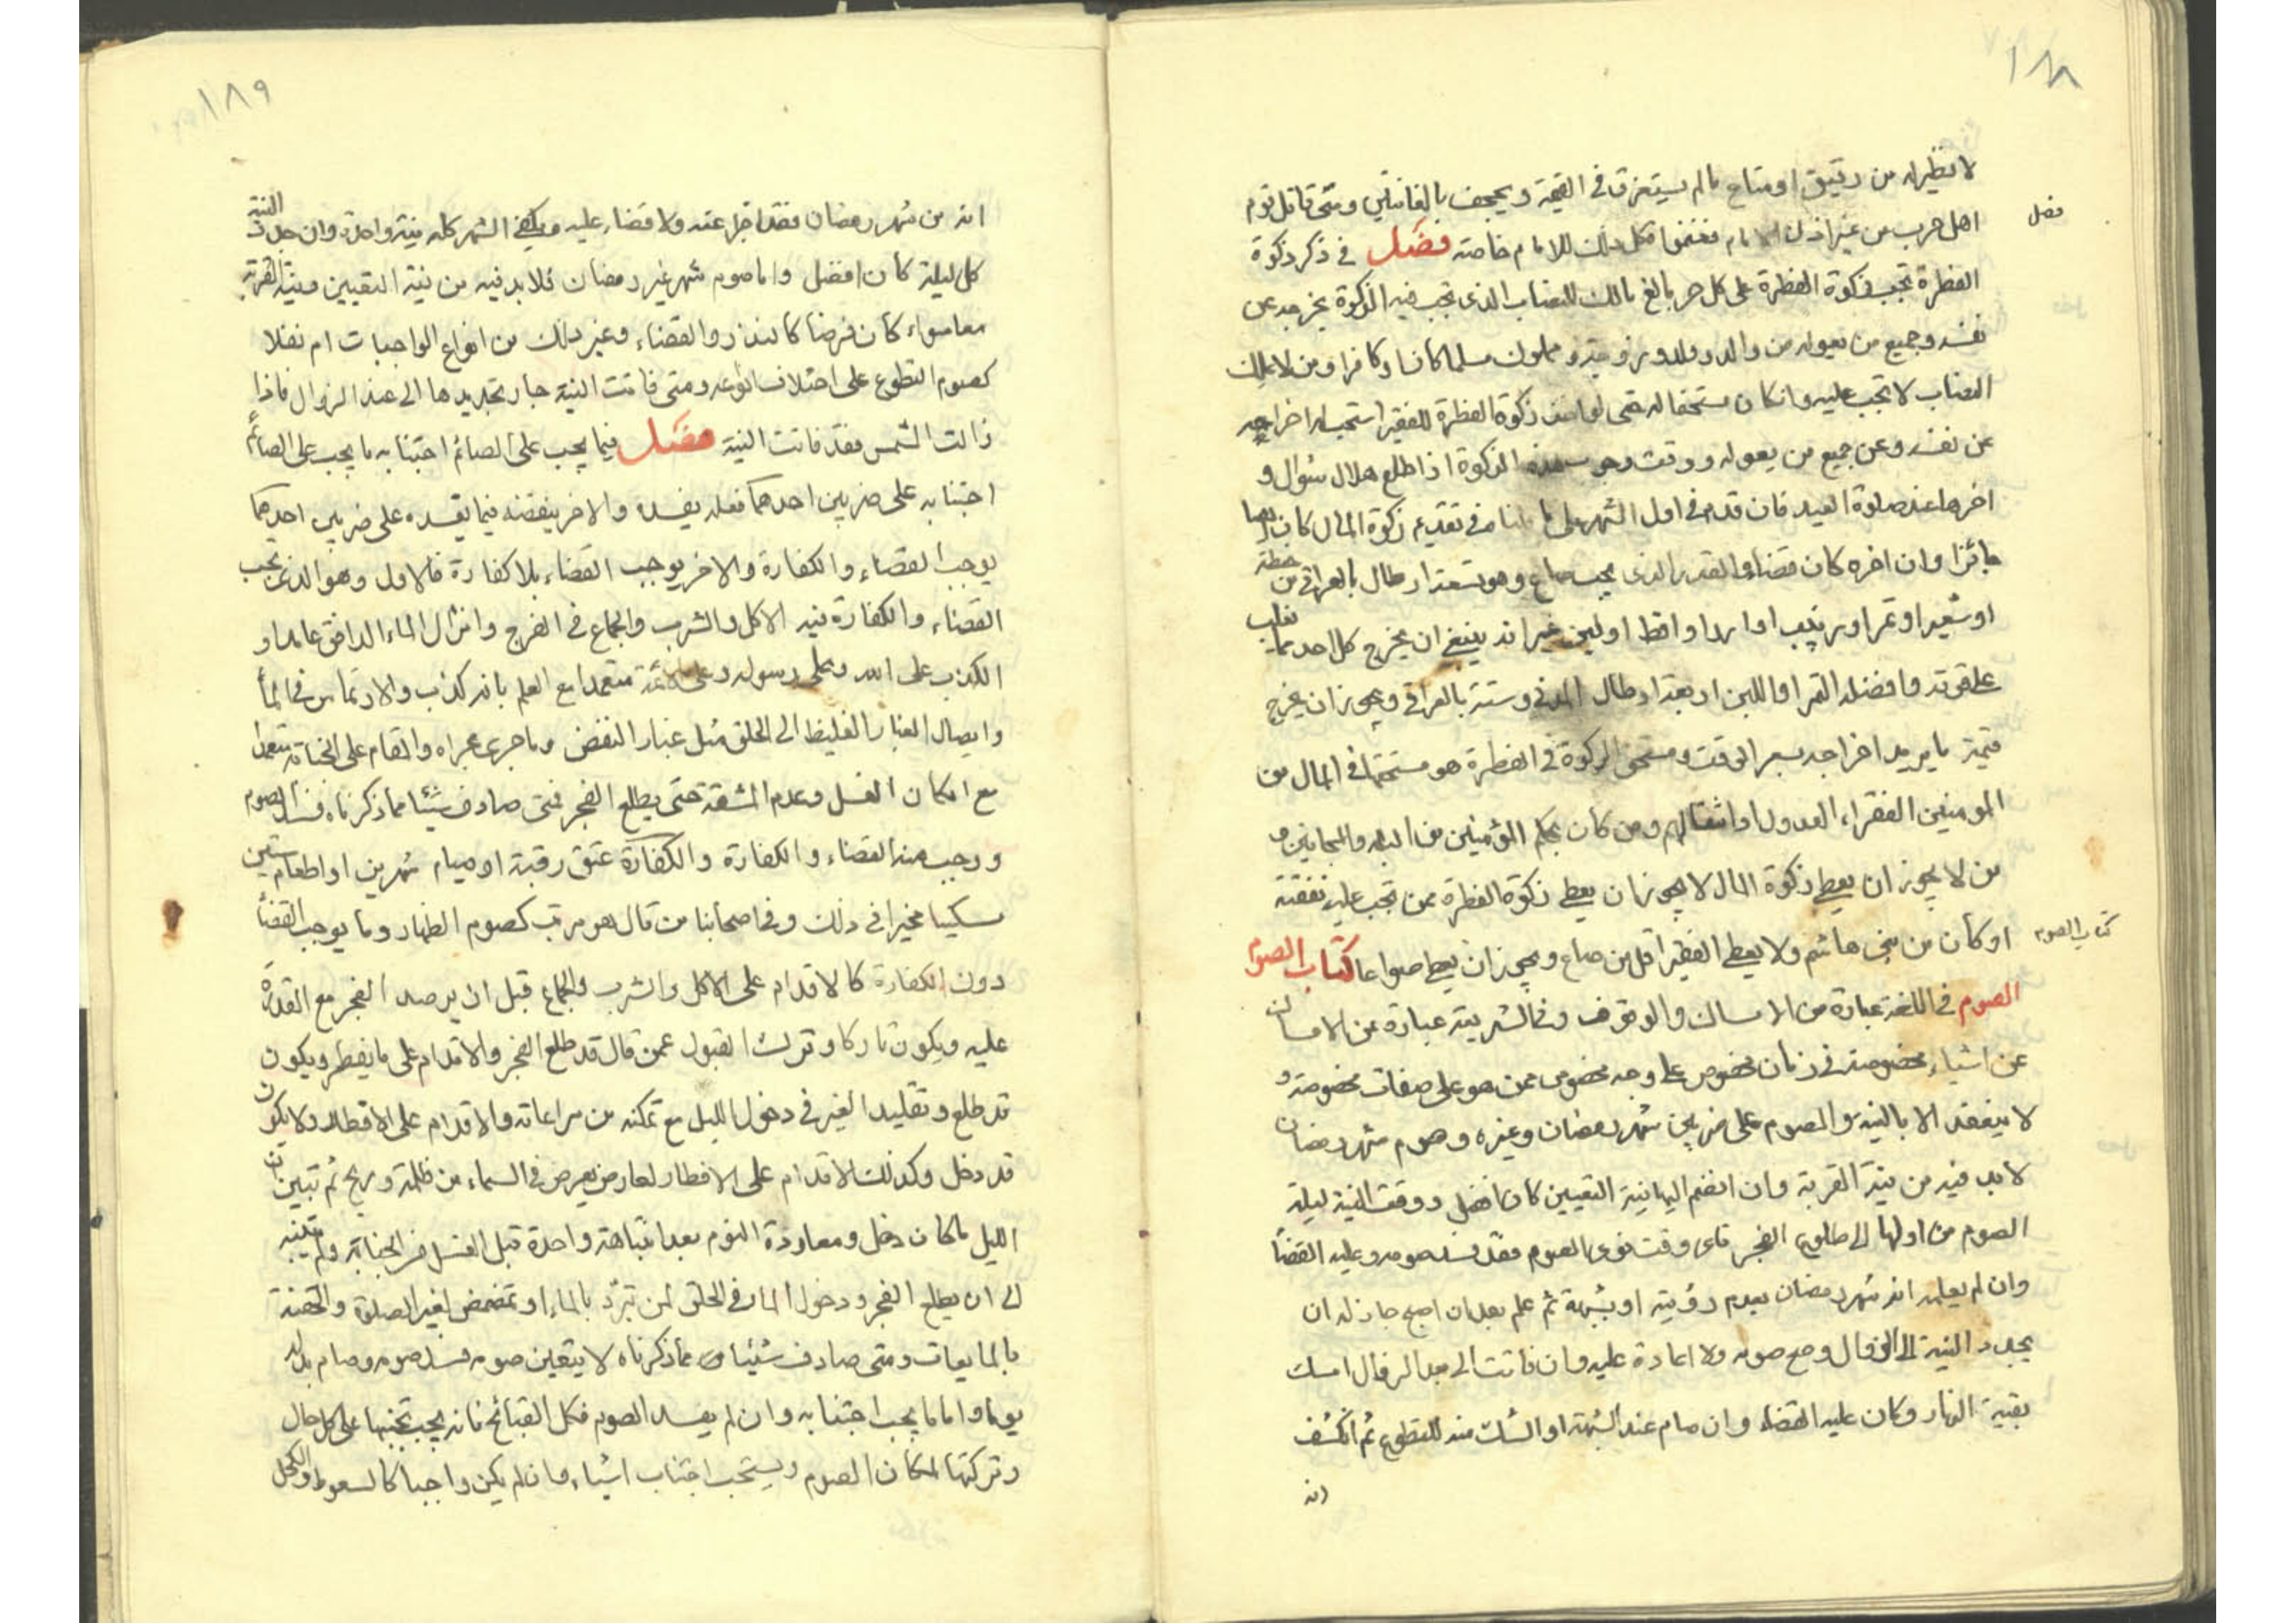 ١٨٨
لا نظير له من رقيق او متاع ما لم يستغرق في القيمة ويجحف بالغانمين ومتى قاتل قوم
فصل
اهل حرب من غير اذن الامام فغنموا فكل ذلك للامام خاصة فصل في ذكر زكوة
الفطرة تجب زكوة الفطرة على كل حر بالغ مالك للنصاب الذى تجب فيه الزكوة يخرجه عن
نفسه وجميع من يعوله من والد وولد وزوجة ومملوك مسلما كان او كافرا ومن لا يملك
النصاب لا تجب عليه وان كان مستحقا له زكوة الفطرة للفقير استحب له اخراجه
عن نفسه وعن جميع من يعوله ووقت وجوب هذه الزكوة اذا طلع هلال شوال و
اخرها عند صلوة العيد فان قدمه في اول الشهر على ما في تقديم زكوة المال كان
جائزا وان اخره كان قضاء والقدر الذى يجب صاع وهو تسعة ارطال بالعراقى من حنطة
او شعير او تمر او زبيب او ارز او اقط او لبن غير انه ينبغى ان يخرج كل احد ما يغلب
على قوته وافضله التمر اربعة ارطال المدنى وستة بالعراقى ويجوز ان يخرج
قيمة ما يريد اخراجه بسعر الوقت ومستحق الزكوة في الفطرة هو مستحقها في المال من
المومنين الفقراء العدول او اطفالهم ومن كان بحكم المؤمنين من البله والمجانين و
من لا يجوز ان يعطى زكوة المال لا يجوز ان يعطى زكوة الفطرة ممن تجب عليه نفقته
كتاب الصوم
او كان من بنى هاشم ولا يعطى الفقير اقل من صاع ويجوز ان يعطى اصواعا كتاب الصوم
الصوم في اللغة عبارة من الامساك والوقوف وفي الشريعة عبارة عن الامساك
عن اشياء مخصوصة في زمان مخصوص على وجه مخصوص ممن هو على صفات مخصوصة و
لا ينعقد الا بالنية والصوم على ضربين شهر رمضان وغيره وصوم شهر رمضان
لا بد فيه من نية القربة وان انضم اليها نية التعيين كان افضل ووقت النية ليلة
الصوم من اولها الى طلوع الفجر فاى وقت نوى الصوم فقد صومه وعليه القضا
وان لم يعلم انه شهر رمضان بعدم رؤيته او بشبهة ثم علم بعد ان اصبح جاز له ان
يجدد النية الى الزوال وصح صومه ولا اعادة عليه وان فاتت الى بعد الزوال امسك
بقية النهار وكان عليه القضاء وان صام عند الشبهة او الشك منه للتطوع ثم انكشف
انه
١٨٩
انه من شهر رمضان فقد اجزا عنه ولا قضاء عليه ويكفى الشهر كله نية واحدة وان جدد النية
كل ليلة كان افضل واما صوم شهر غير رمضان فلا بد فيه من نية التعيين ونية القربة
معا سواء كان فرضا كالنذر والقضاء وغير ذلك من انواع الواجبات ام نفلا
كصوم التطوع على اختلاف انواعه ومتى فاتت النية جاز تجديدها الى عند الزوال فاذا
زالت الشمس فقد فاتت النية فصل فيما يجب على الصائم اجتنابه ما يجب على الصائم
اجتنابه على ضربين احدهما فعله يفسده والاخر ينقضه فيما يفسده على ضربين احدهما
يوجب القضاء والكفارة والاخر يوجب القضاء بلا كفارة فالاول وهو الذى يجب
القضاء والكفارة فيه الاكل والشرب والجماع في الفرج وانزال الماء الدافق عامدا و
الكذب على الله وعلى رسوله وعلى الائمة متعمدا مع العلم بانه كذب والارتماس في الماء
وايصال الغبار الغليظ الى الحلق مثل غبار النفض وما جرى مجراه والمقام على الجنابة متعمدا
مع امكان الغسل وعدم المشقة حتى يطلع الفجر فمتى صادف شيئا مما ذكرناه فسد الصوم
ووجب منه القضاء والكفارة والكفارة عتق رقبة او صيام شهرين او اطعام ستين
مسكينا مخيرا في ذلك وفي اصحابنا من قال هو مرتب كصوم الظهار وما يوجب القضا
دون الكفارة كالاقدام على الاكل والشرب والجماع قبل ان يرصد الفجر مع القدرة
عليه ويكون تاركا وترك القبول عمن قال قد طلع الفجر والاقدام على ما يفطر ويكون
قد طلع وتقليد الغير في دخول الليل مع تمكنه من مراعاته والاقدام على الافطار ولا يكون
قد دخل وكذلك الاقدام على الافطار لعارض يعرض في السماء من ظلمة وريح ثم تبين ان
الليل ما كان دخل ومعاودة النوم بعد انتباهة واحدة قبل الغسل من الجنابة ولم ينتبه
الى ان يطلع الفجر ودخول الماء في الحلق لمن تبرد بالماء او تمضمض لغير الصلوة والحقنة
بالمايعات ومتى صادف شيئا مما ذكرناه لا يتعين صومه فسد صومه وصام بدله
يوما واما ما يجب اجتنابه وان لم يفسد الصوم فكل القبائح فانه يجب تجنبها على كل حال
وتركها لمكان الصوم ويستحب اجتناب اشياء وان لم يكن واجبا كالسعوط والكحل